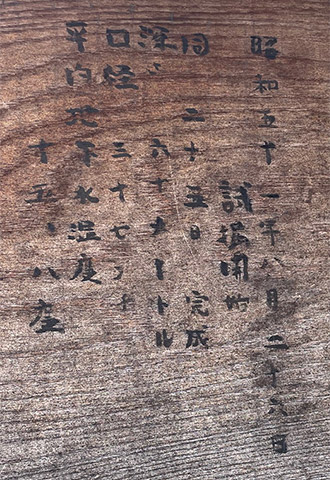 昭和五十一年八月二十六日
試掘開始
同 二十五日 完成
深さ 六十メートル
口径 三十七
平内地下水温度
十五、八度